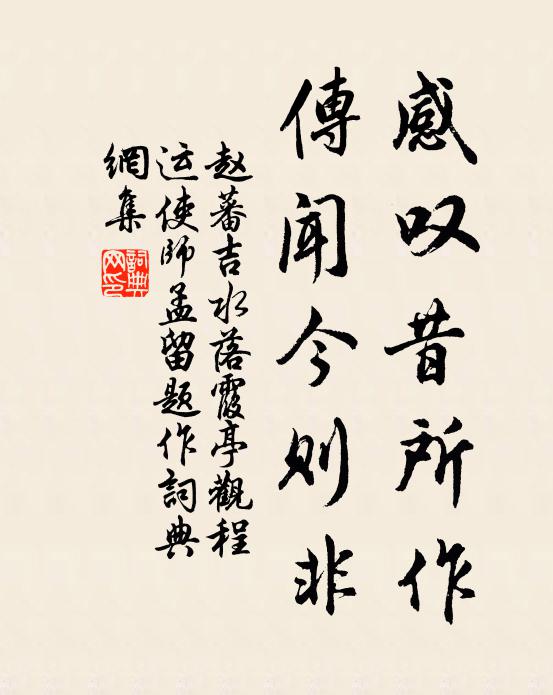 感叹昔所作
傳聞今则非
赵蕃吉水落霞亭觀程
运使師孟留题作詞典
網集
詞典网印